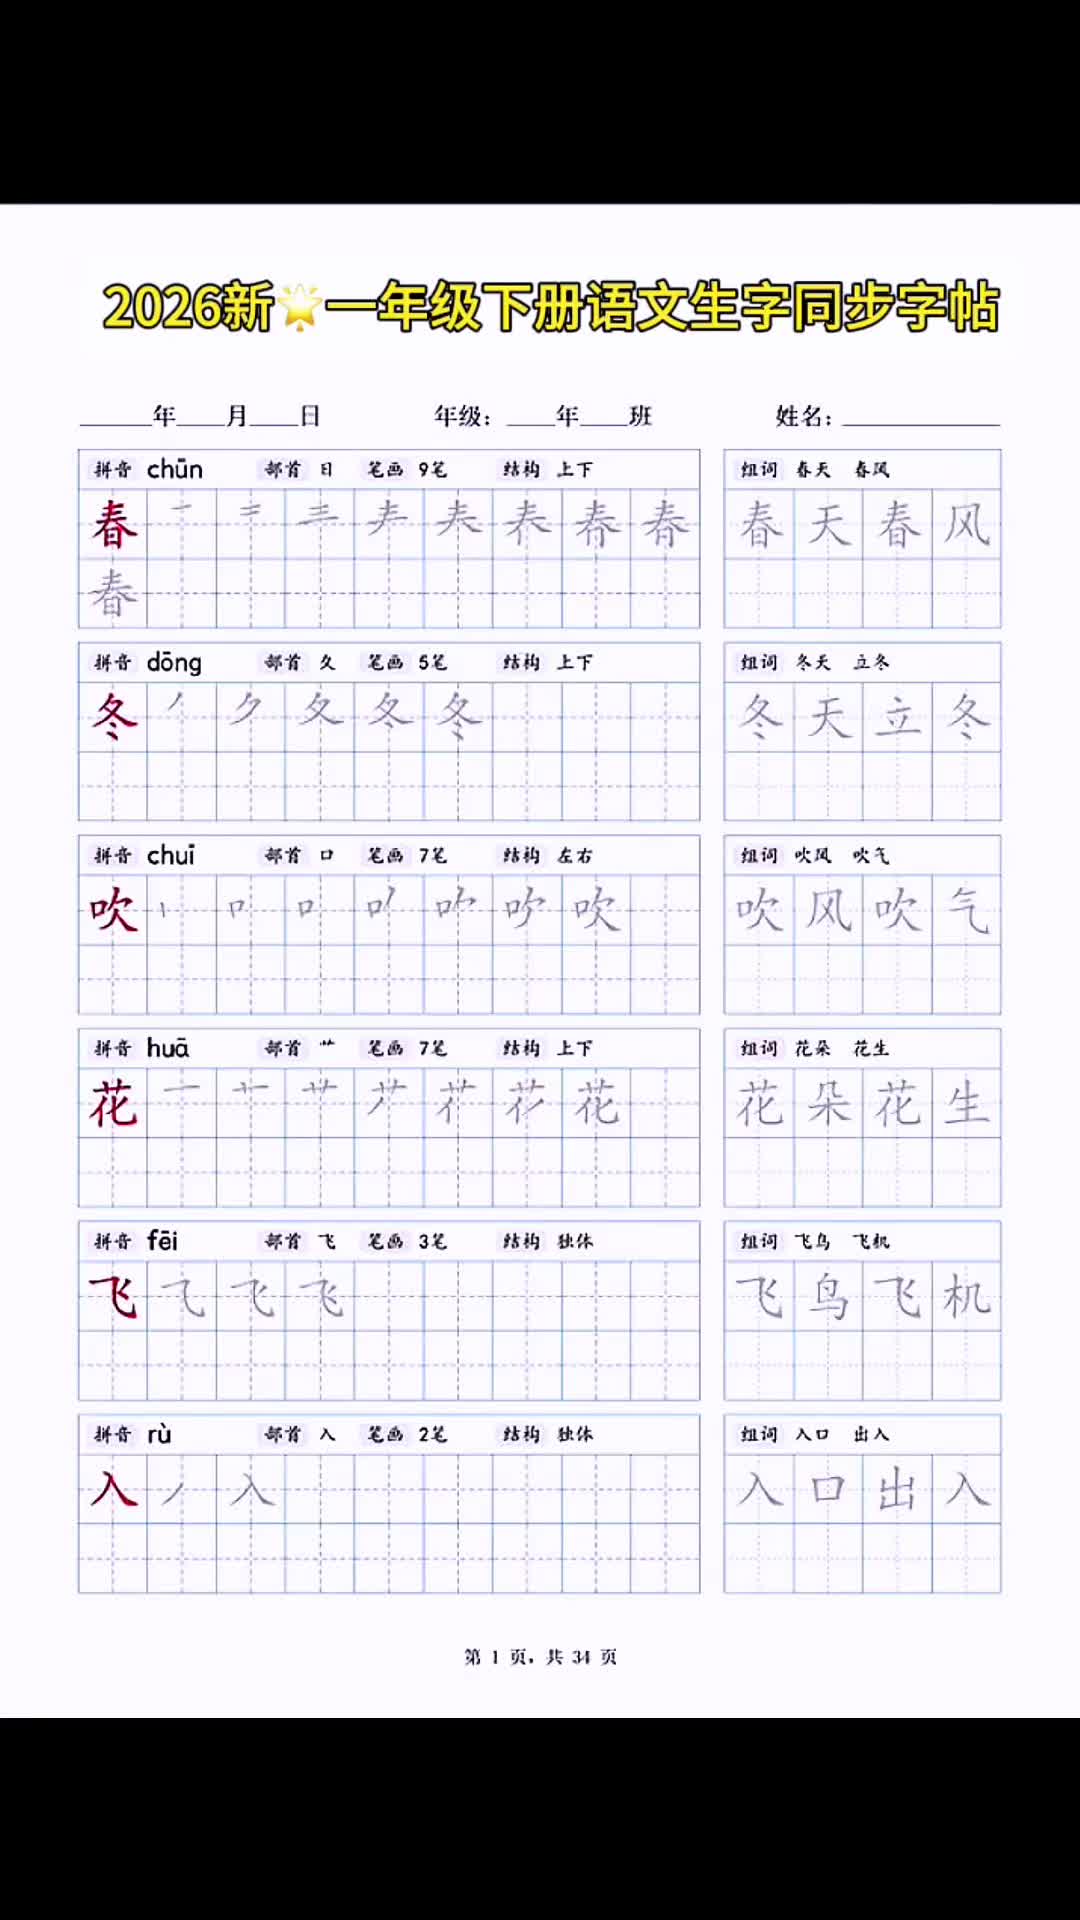 2026新🌟一年级下册语文生字同步字帖
____年____月____日 年级：____年____班 姓名：____________
拼音 chūn 部首 日 笔画 9笔 结构 上下 组词 春天 春风
春 春 天 春 风
春
拼音 dōng 部首 夂 笔画 5笔 结构 上下 组词 冬天 立冬
冬 冬 冬 天 立 冬
拼音 chuī 部首 口 笔画 7笔 结构 左右 组词 吹风 吹气
吹 吹 吹 风 吹 气
拼音 huā 部首 艹 笔画 7笔 结构 上下 组词 花朵 花生
花 花 花 朵 花 生
拼音 fēi 部首 飞 笔画 3笔 结构 独体 组词 飞鸟 飞机
飞 飞 飞 鸟 飞 机
拼音 rù 部首 入 笔画 2笔 结构 独体 组词 入口 出入
入 入 入 口 出 入
第 1 页，共 34 页